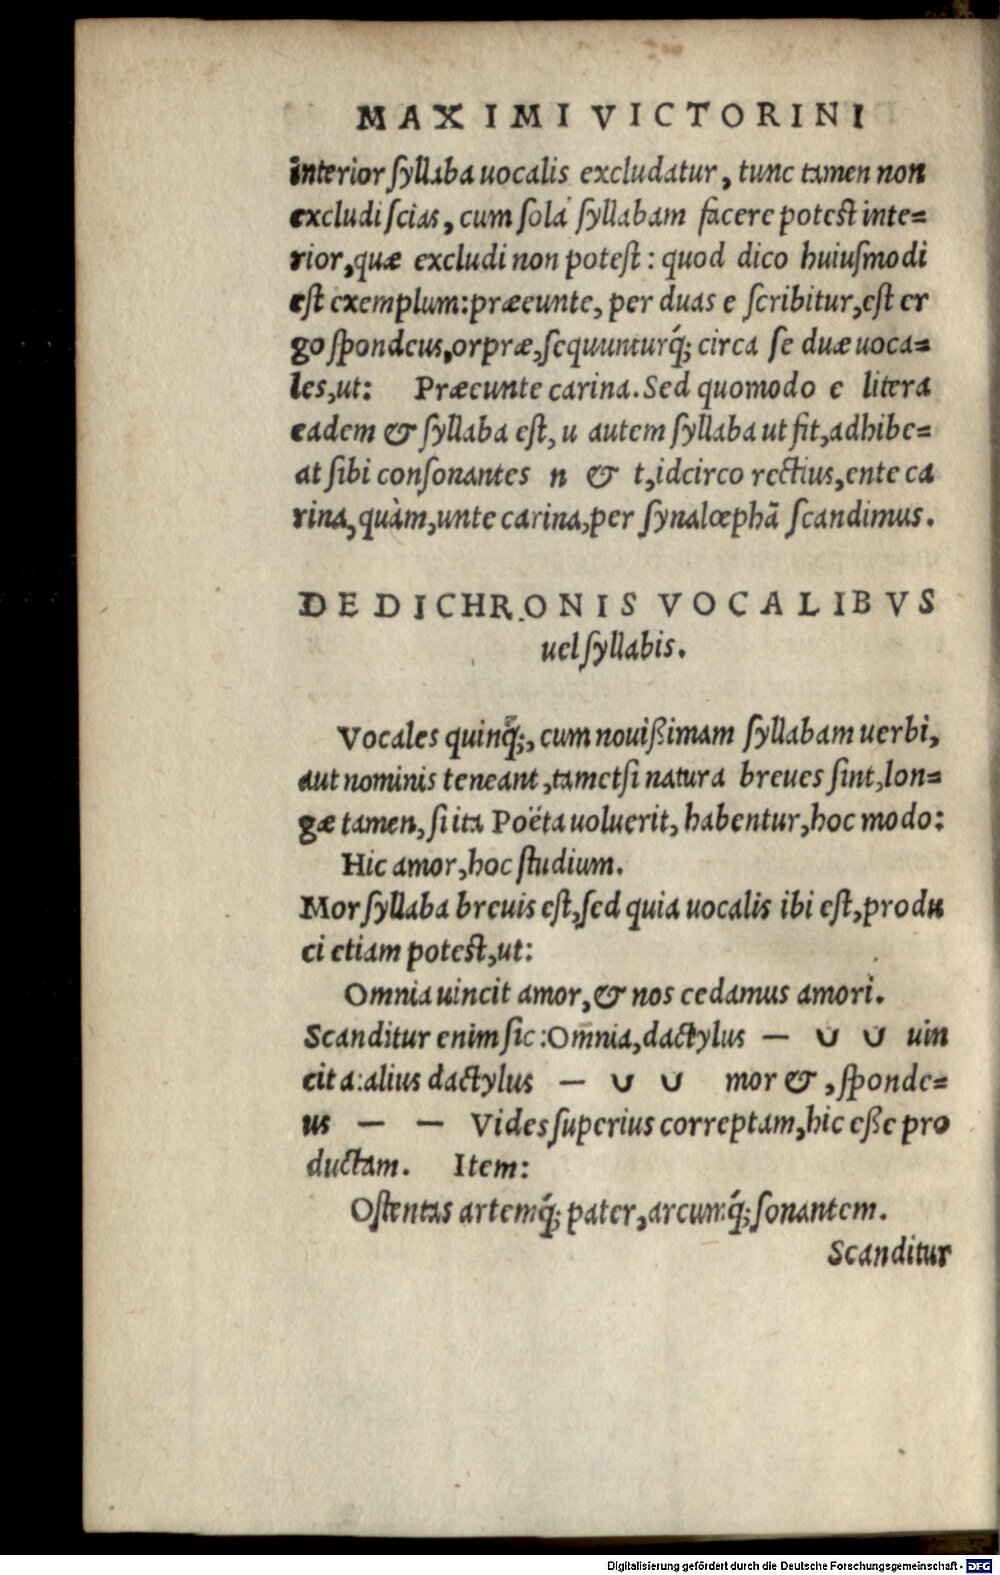 MAXIMI VICTORINI
interior ſyllaba uocalis excludatur, tunc tamen non
excludi ſcias, cum ſola ſyllabam facere poteſt inte=
rior, quæ excludi non poteſt: quod dico huiuſmodi
eſt exemplum: præeunte, per duas e ſcribitur, eſt er
go ſpondeus, orpræ, ſequunturq́; circa ſe duæ uoca=
les, ut: Præeunte carina. Sed quomodo e litera
eadem & ſyllaba eſt, u autem ſyllaba ut fit, adhibe=
at ſibi conſonantes n & t, idcirco rectius, ente ca
rina, quàm, unte carina, per ſynalœphā ſcandimus.
DE DICHRONIS VOCALIBVS
uel ſyllabis.
Vocales quinq;, cum nouißimam ſyllabam uerbi,
aut nominis teneant, tametſi natura breues ſint, lon=
gæ tamen, ſi ita Poëta uoluerit, habentur, hoc modo:
Hic amor, hoc ſtudium.
Mor ſyllaba breuis eſt, ſed quia uocalis ibi eſt, produ
ci etiam poteſt, ut:
Omnia uincit amor, & nos cedamus amori.
Scanditur enim ſic: Om̄nia, dactylus — ∪ ∪ uin
cit a: alius dactylus — ∪ ∪ mor &, ſponde=
us — — Vides ſuperius correptam, hic eße pro
ductam. Item:
Oſtentas artemq́; pater, arcumq́; ſonantem.
Scanditur
Digitalisierung gefördert durch die Deutsche Forschungsgemeinschaft - DFG